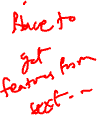 Have to
get
features from
sext. ~